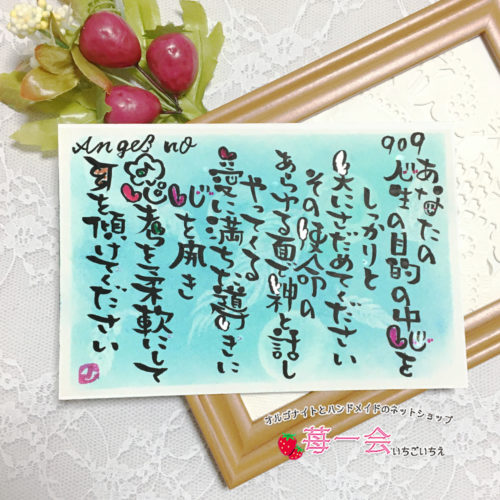 Angel no
909
あなたの
人生の目的の中心を
しっかりと
天にさだめてください
その使命の
あらゆる面で神と話し
やってくる
愛に満ちた導きに
心を開き
思考を柔軟にして
耳を傾けてください
オルゴナイトとハンドメイドのネットショップ
苺一会
いちごいちえ